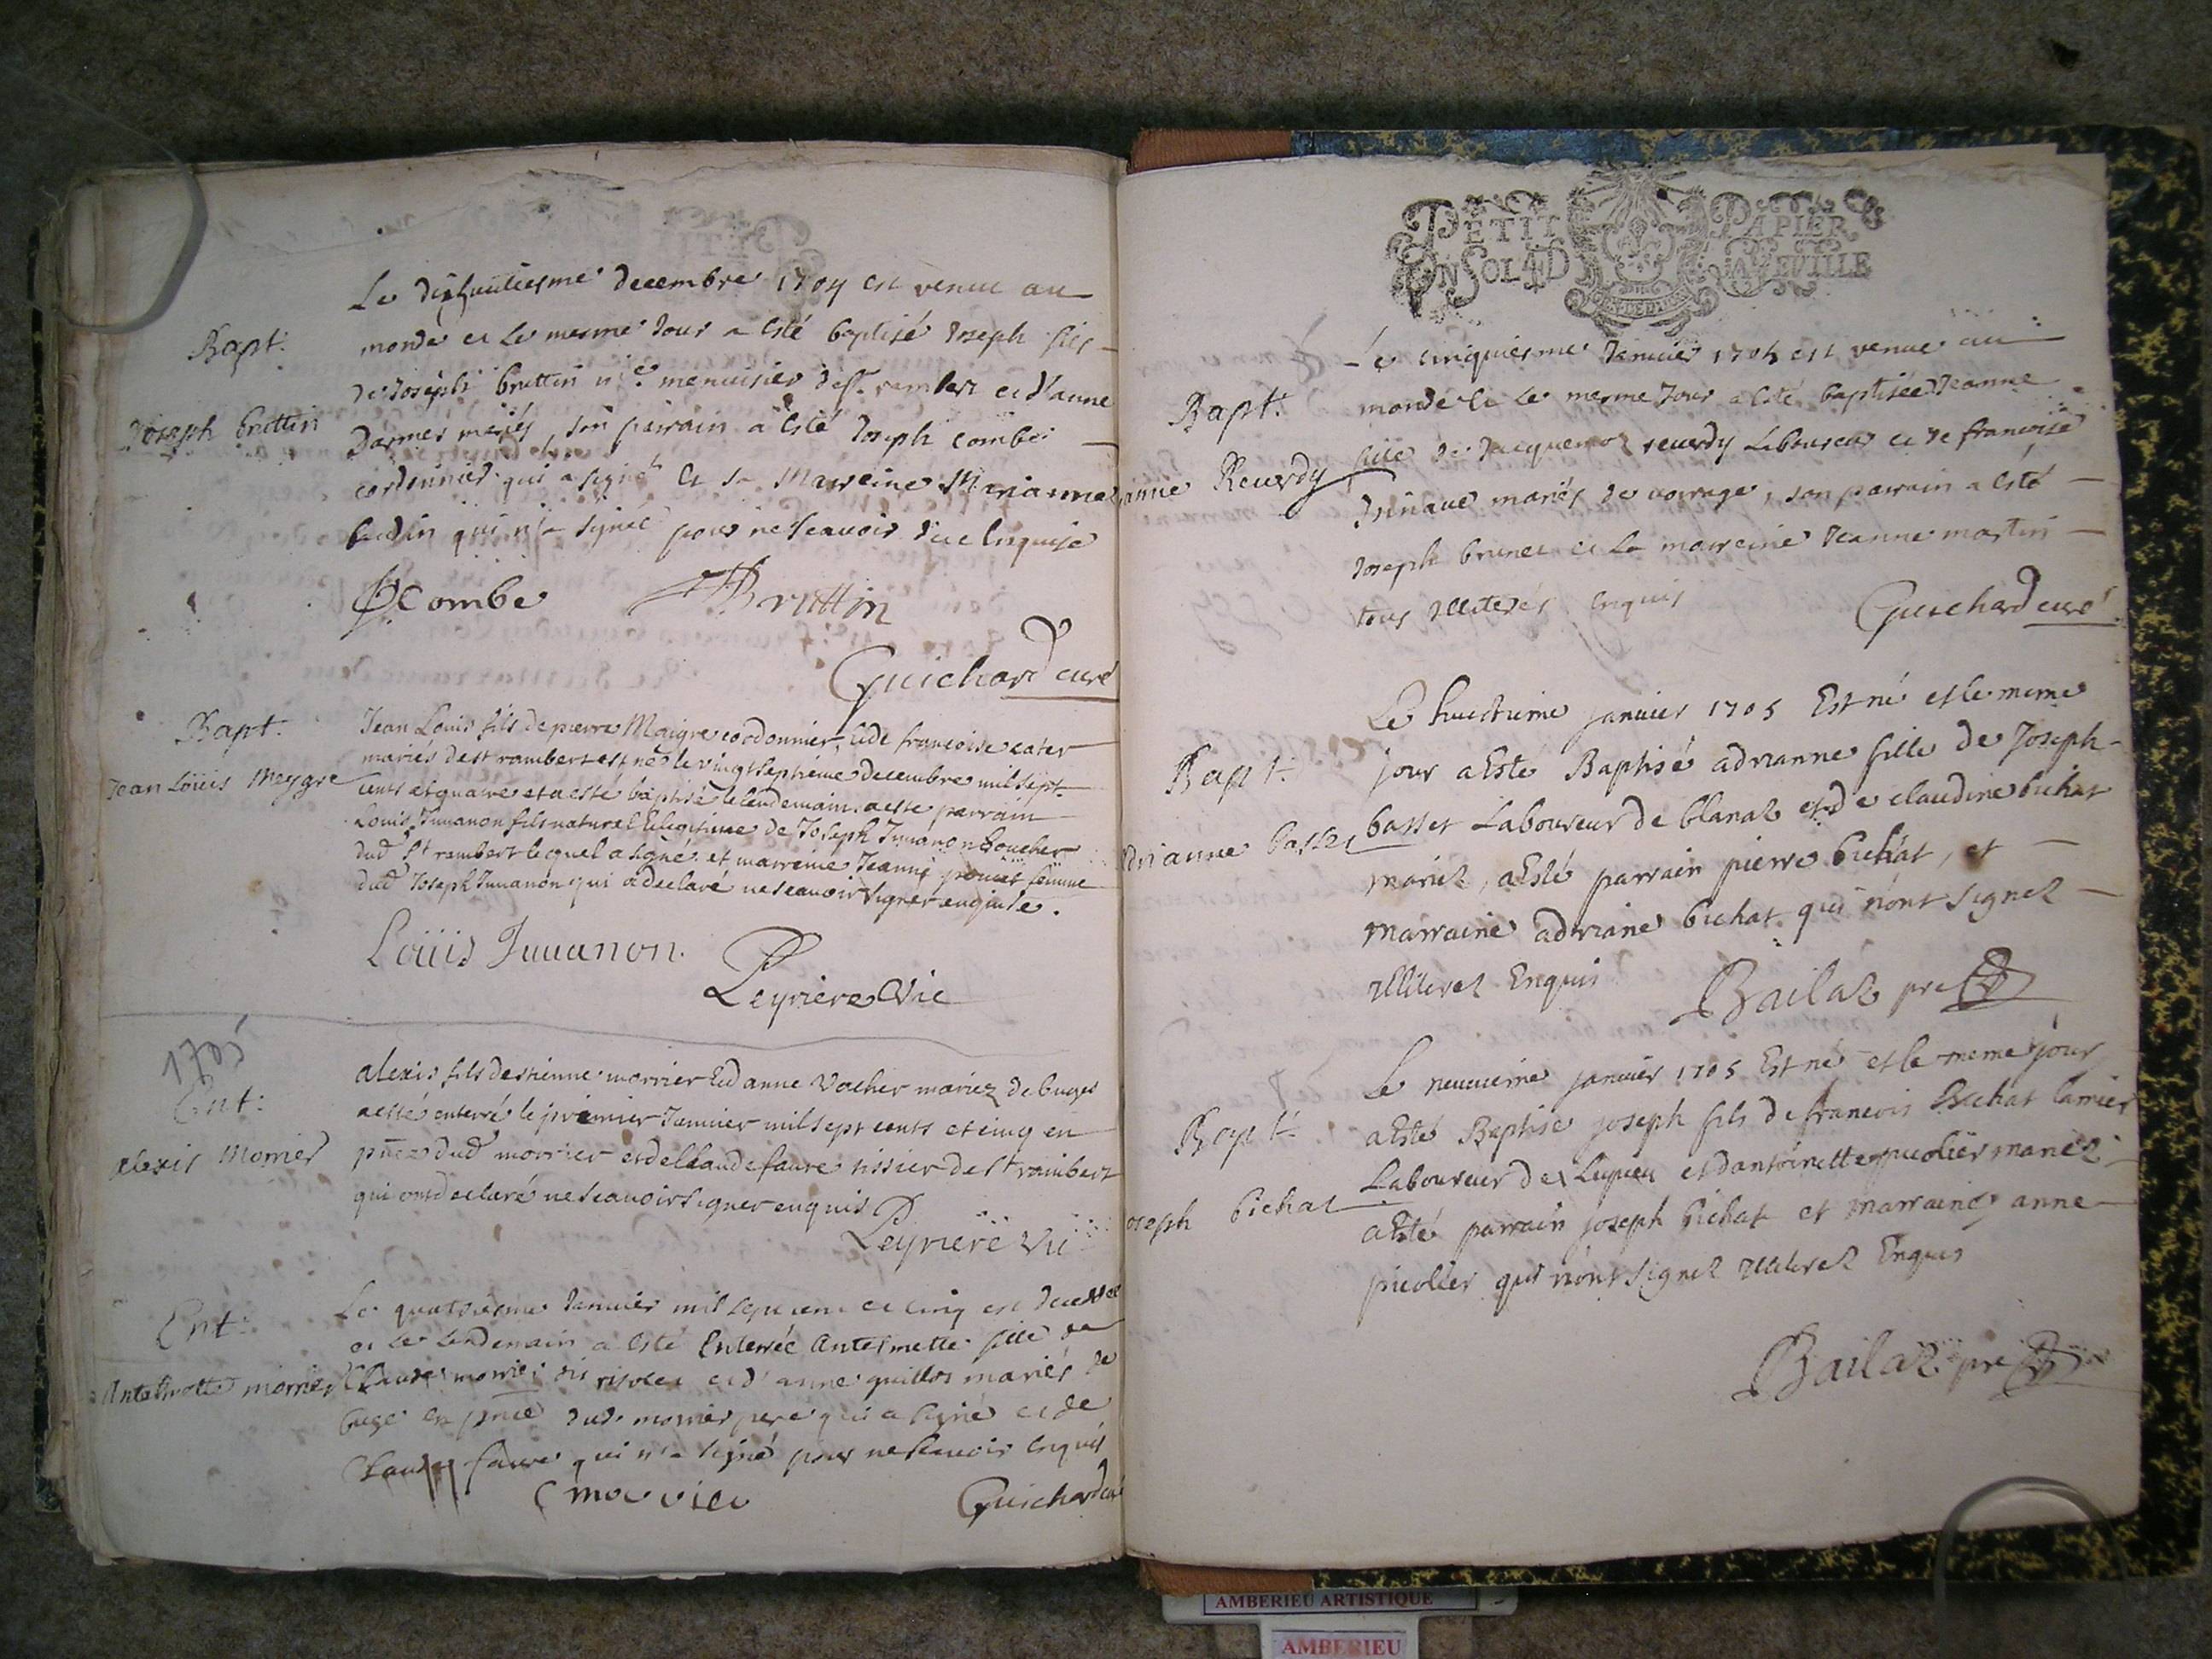 Le dixhuitiesme decembre 1704 est venu au
Bapt.
monde et le mesme Jour a esté baptisé Joseph fils
Joseph bruttin
de Joseph bruttin me menuisier de st rambert et d'anne
Darmes mariés, son parrain a esté Joseph Combe
cordonnier qui a signé et sa Marreine Marianne
bodin qui n'a signé pour ne scavoir de ce enquise
Combe Bruttin
Guichard curé
Bapt.
Jean Loüis Meygre
Jean Louis fils de pierre Maigre cordonnier, & de francoise cater
mariés de st rambert est né le vingt septième decembre mil sept
cents et quatre et a esté baptisé le lendemain. a esté parrain
Louis Juuanon fils naturel & legitime de Joseph Juuanon boucher
dud St rambert lequel a signé et marreine Jeanne femme
dud Joseph Juuanon qui a declaré ne scauoir signer enquise.
Loüis Juuanon.
Leyriere Vic
1705
Ent:
alexis Morrier
alexis fils destienne morrier & d anne Vacher mariez de buges
a esté enterré le premier Januier mil sept cents et cinq en
pnce dud morrier et de Claude faure tissier de St rambert
qui ont declaré ne scauoir signer enquis
Leyriere Vic
Ent:
Antelmette morrier
Le quatriesme Januier mil sept cent et cinq est decedée
et le lendemain a esté Enterrée Antelmette fille de
Claude morrier dit et d'anne guillot mariés de
buge en pnce dud. morrier pere qui a signé et de
Claude faure qui n'a signé pour ne scauoir enquis
C morrier
Guichard curé
PETIT PAPIER
UN SOL 4 D LA FEUILLE
Le cinquiesme Januier 1705 est venue au
Bapt.
monde et le mesme Jour a esté baptisée Jeanne
anne Reuerdy
fille de Jacquemoz reuerdy Laboureur et de francoise
mariés de, son parrain a esté
Joseph brunet et la marreine Jeanne martin
tous illiterés enquis
Guichard curé
Bapt.
Adrianne basset
Le huictieme januier 1705 Est né et le meme
jour a Esté Baptisé adrianne fille de Joseph
basset Laboureur de blanaz et de claudine bichat
mariez, a Esté parrain pierre bichat, et
marraine adriane bichat qui n'ont signez
Illiterez Enquis
Bailaz pre
Bapt.
oseph bichat
Le neuuieme januier 1705 Est né et le meme jour
a Esté Baptisé joseph fils de francois Bichat lamier
Laboureur de Lupieu et dantoinette picolier mariez
a Esté parrain joseph bichat et marraine anne
picolier qui n'ont signez Illiterez Enquis
Bailaz pre
AMBERIEU ARTISTIQUE
AMBERIEU